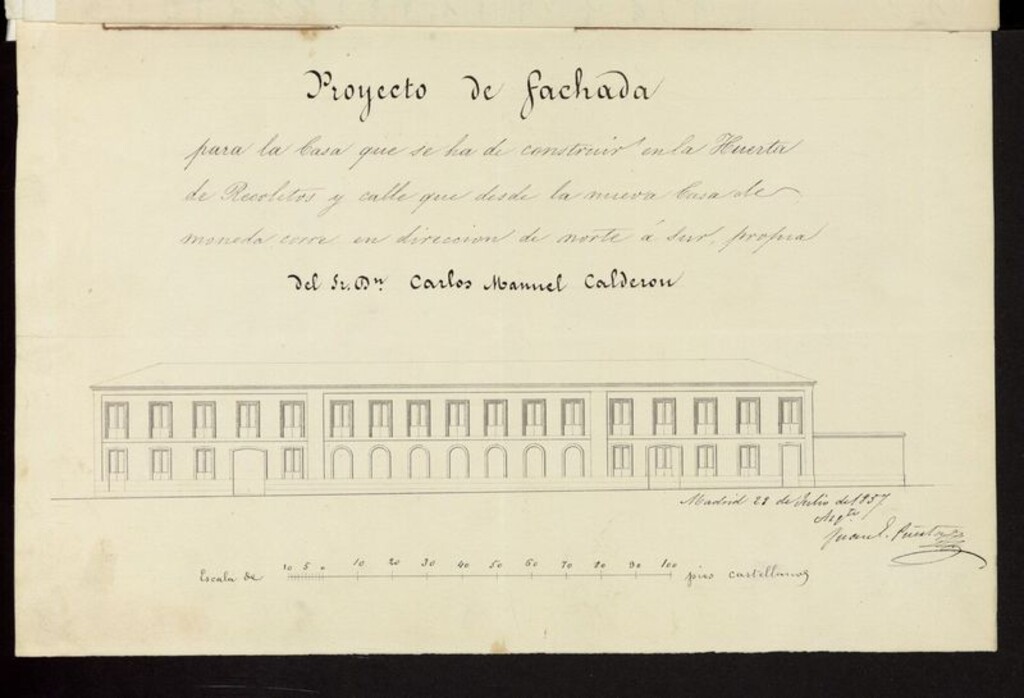 Proyecto de fachada
para la Casa que se ha de construir en la Huerta
de Recoletos y calle que desde la nueva Casa de
moneda corre en direccion de norte á sur, propia
del Sr. Dn Carlos Manuel Calderon
Madrid 22 de Julio de 1857
Arqto
Escala de 10 5 0 10 20 30 40 50 60 70 80 90 100 pies castellanos